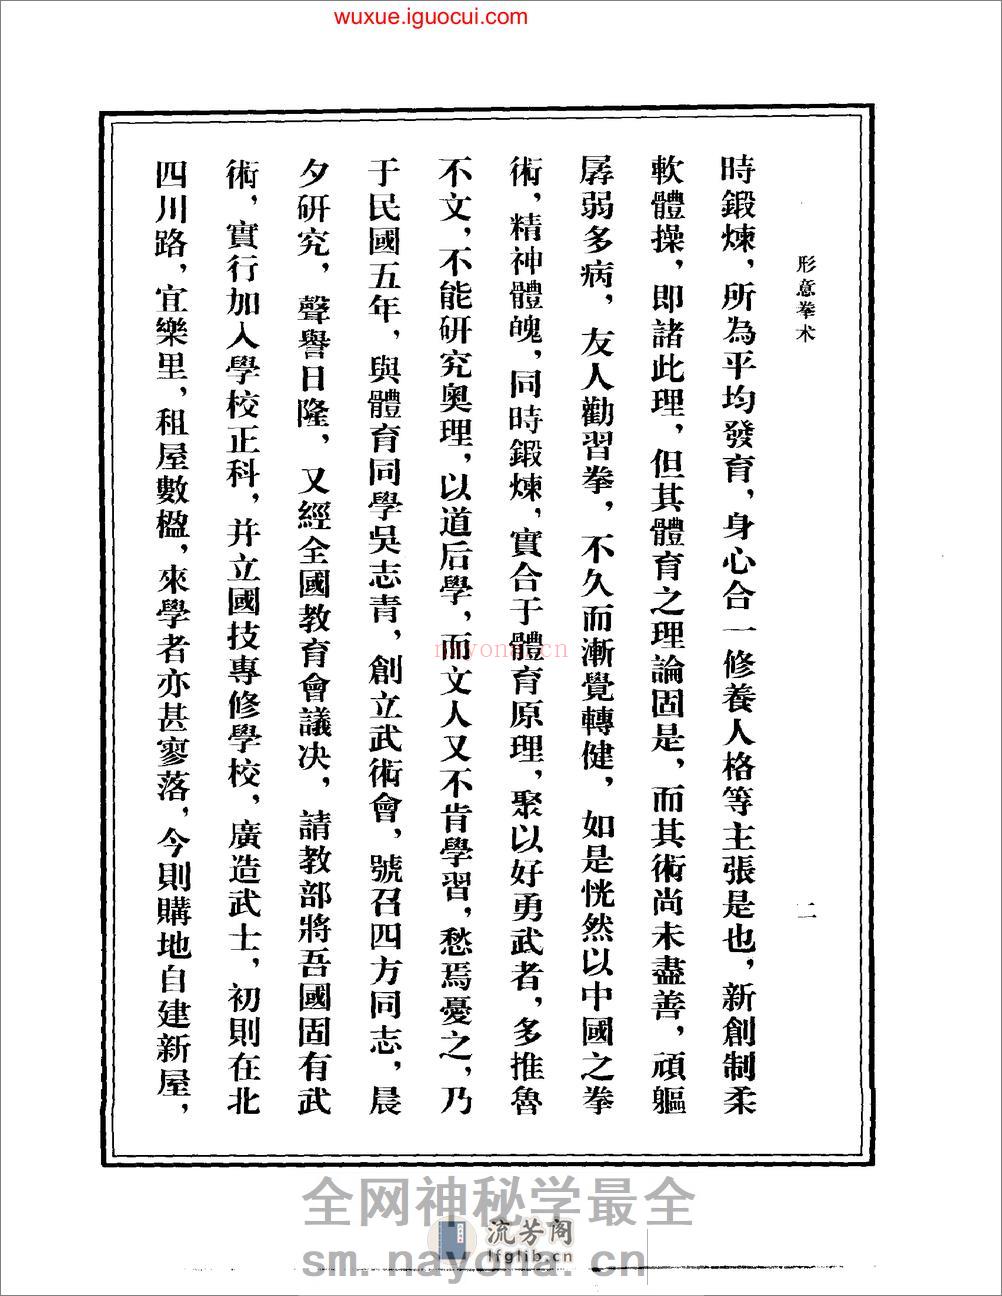 wuxue.iguocui.com
形意拳术
二
時鍛煉，所為平均發育，身心合一修養人格等主張是也，新創制柔
軟體操，即諸此理，但其體育之理論固是，而其術尚未盡善，頑軀
孱弱多病，友人勸習拳，不久而漸覺轉健，如是恍然以中國之拳
術，精神體魄，同時鍛煉，實合于體育原理，聚以好勇武者，多推魯
不文，不能研究奧理，以道后學，而文人又不肯學習，愁焉憂之，乃
于民國五年，與體育同學吳志青，創立武術會，號召四方同志，晨
夕研究，聲譽日隆，又經全國教育會議决，請教部將吾國固有武
術，實行加入學校正科，并立國技專修學校，廣造武士，初則在北
四川路，宜樂里，租屋數楹，來學者亦甚寥落，今則購地自建新屋，
nayona.cn
全网神秘学最全
流芳阁
lfglib.cn
sm.nayona.cn